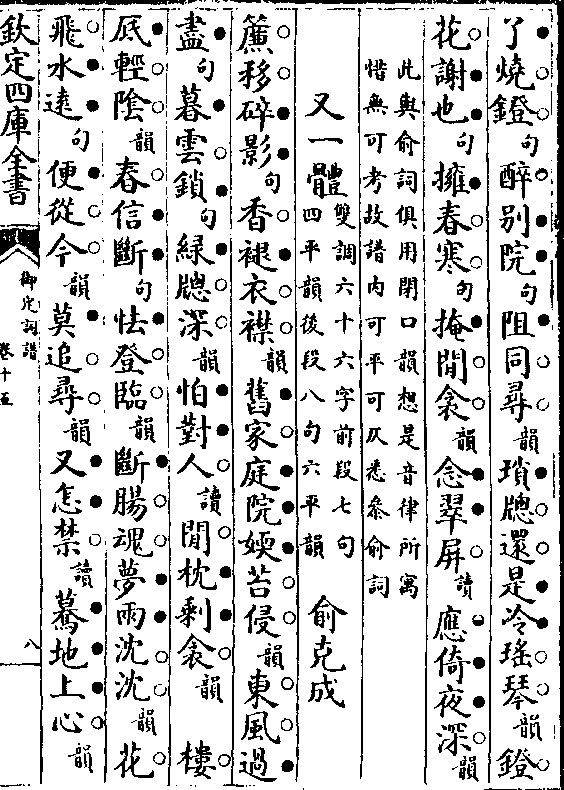 了燒鐙句醉别院句阻同尋韻瑣牕還是冷瑤琴韻鐙
花謝也句擁春寒句掩閒衾韻念翠屏讀應倚夜深韻
此與俞詞俱用閉口韻想是音律所寓
惜無可考故譜内可平可仄悉叅俞詞
又一體雙調六十六字前段七句四平韻後段八句六平韻 俞克成
簾移碎影句香褪衣襟韻舊家庭院嫩苔侵韻東風過
盡句暮雲鎖句綠牕深韻怕對人讀閒枕剩衾韻 樓
底輕隂韻春信斷句怯登臨韻斷腸魂夢兩沈沈韻花
飛水遠句便從今韻莫追尋韻又怎禁讀驀地上心韻
欽定四庫全書
御定詞譜
卷十五
八